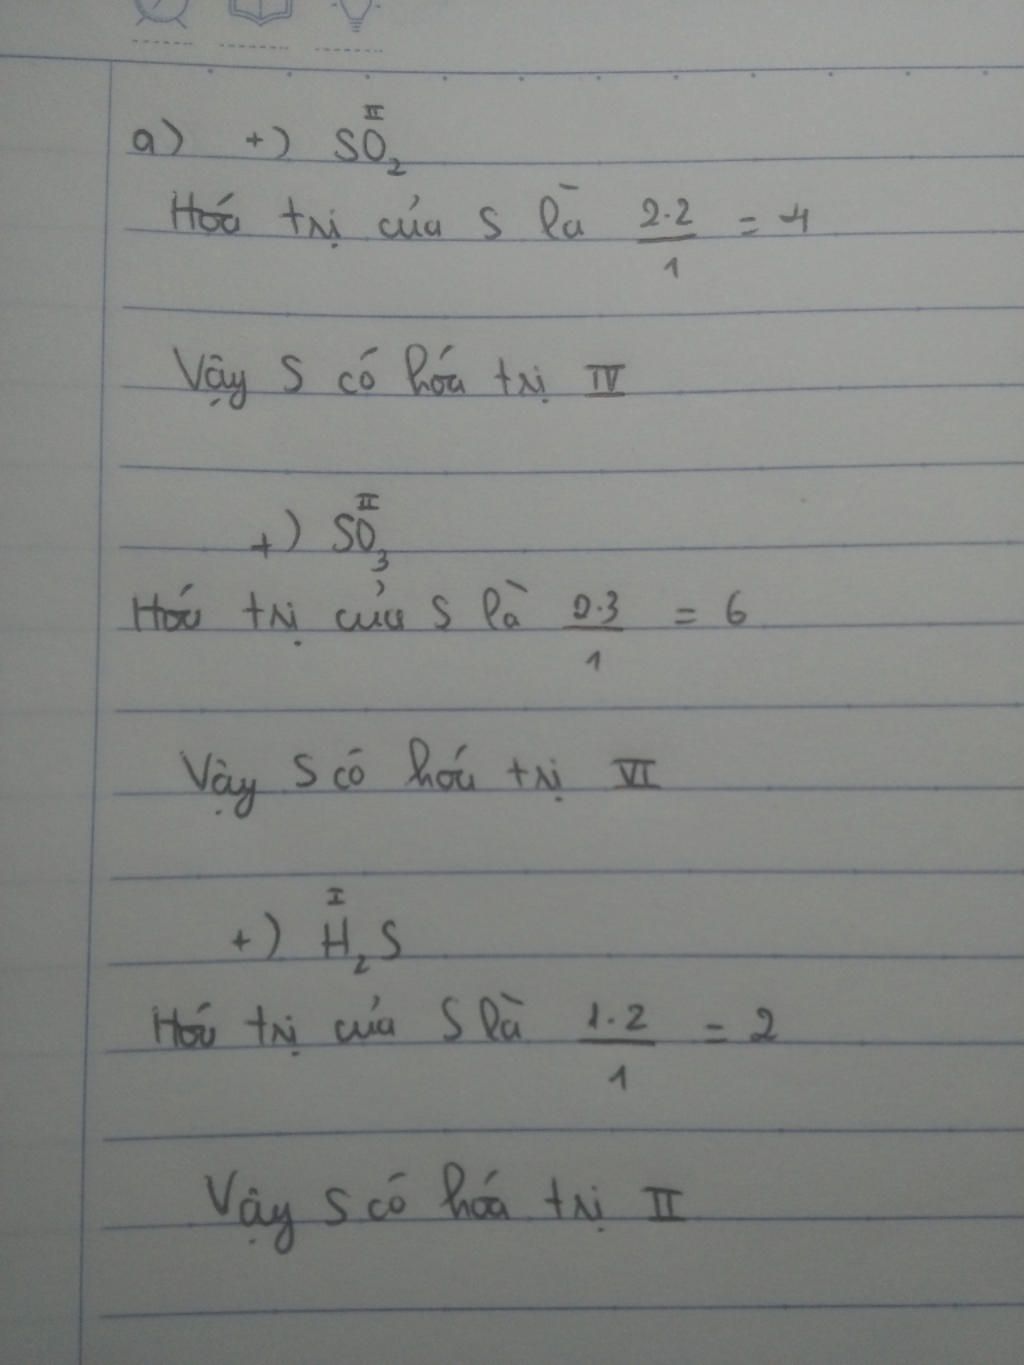 a) +) SO₂ (II)
Hoá trị của S là 2.2/1 = 4
Vậy S có hóa trị IV
+) SO₃ (II)
Hóa trị của S là 2.3/1 = 6
Vậy S có hóa trị VI
+) H₂S (I)
Hóa trị của S là 1.2/1 = 2
Vậy S có hóa trị II